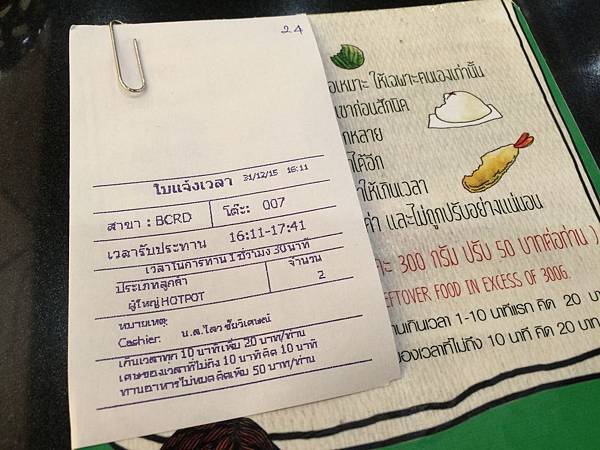 24
ใบแจ้งเวลา 31/12/15 16:11
สาขา : BCRD โต๊ะ: 007
เวลารับประทาน 16:11-17:41
เวลาในการทาน 1 ชั่วโมง 30 นาที
ประเภทลูกค้า จำนวน
ผู้ใหญ่ HOTPOT 2
หมายเหตุ:
Cashier: น.ส.ไสว ชัยวิเศษณ์
เกินเวลาทุก 10 นาทีเพิ่ม 20 บาท/ท่าน
เศษของเวลาที่ไม่ถึง 10 นาที คิด 10 นาที
ทานอาหารไม่หมด คิดเพิ่ม 50 บาท/ท่าน
ให้เฉพาะคนเองเท่านั้น
ก่อนสักนิด
หลาย
ได้อีก
ให้เกินเวลา
และไม่ถูกปรับอย่างแน่นอน
300 กรัม ปรับ 50 บาทต่อท่าน )
LEFTOVER FOOD IN EXCESS OF 300G.
านเกินเวลา 1-10 นาทีแรก คิด 20
ของเวลาที่ไม่ถึง 10 นาที คิด 20 บาท